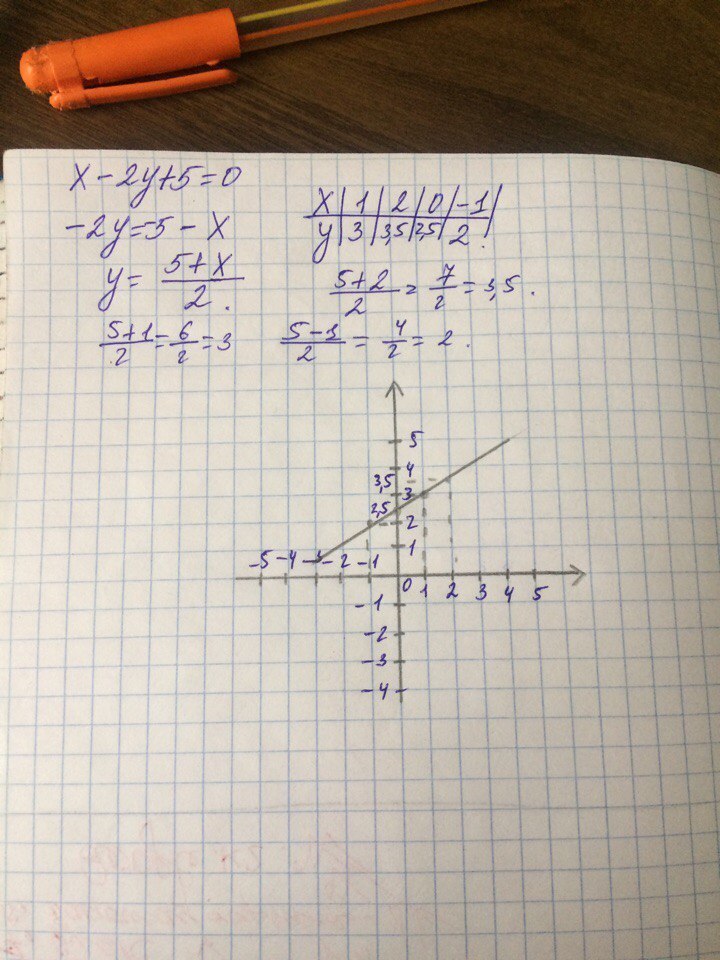 x - 2y + 5 = 0
-2y = -5 - x
y = (5 + x)/2.
(5+1)/2 = 6/2 = 3
x | 1 | 2 | 0 | -1 |
y | 3 | 3,5 | 2,5 | 2.
(5+2)/2 = 7/2 = 3,5.
(5-1)/2 = 4/2 = 2.
5
3,5 4
3
2,5
2
1
-5 -4 -3 -2 -1
0 1 2 3 4 5
-1
-2
-3
-4